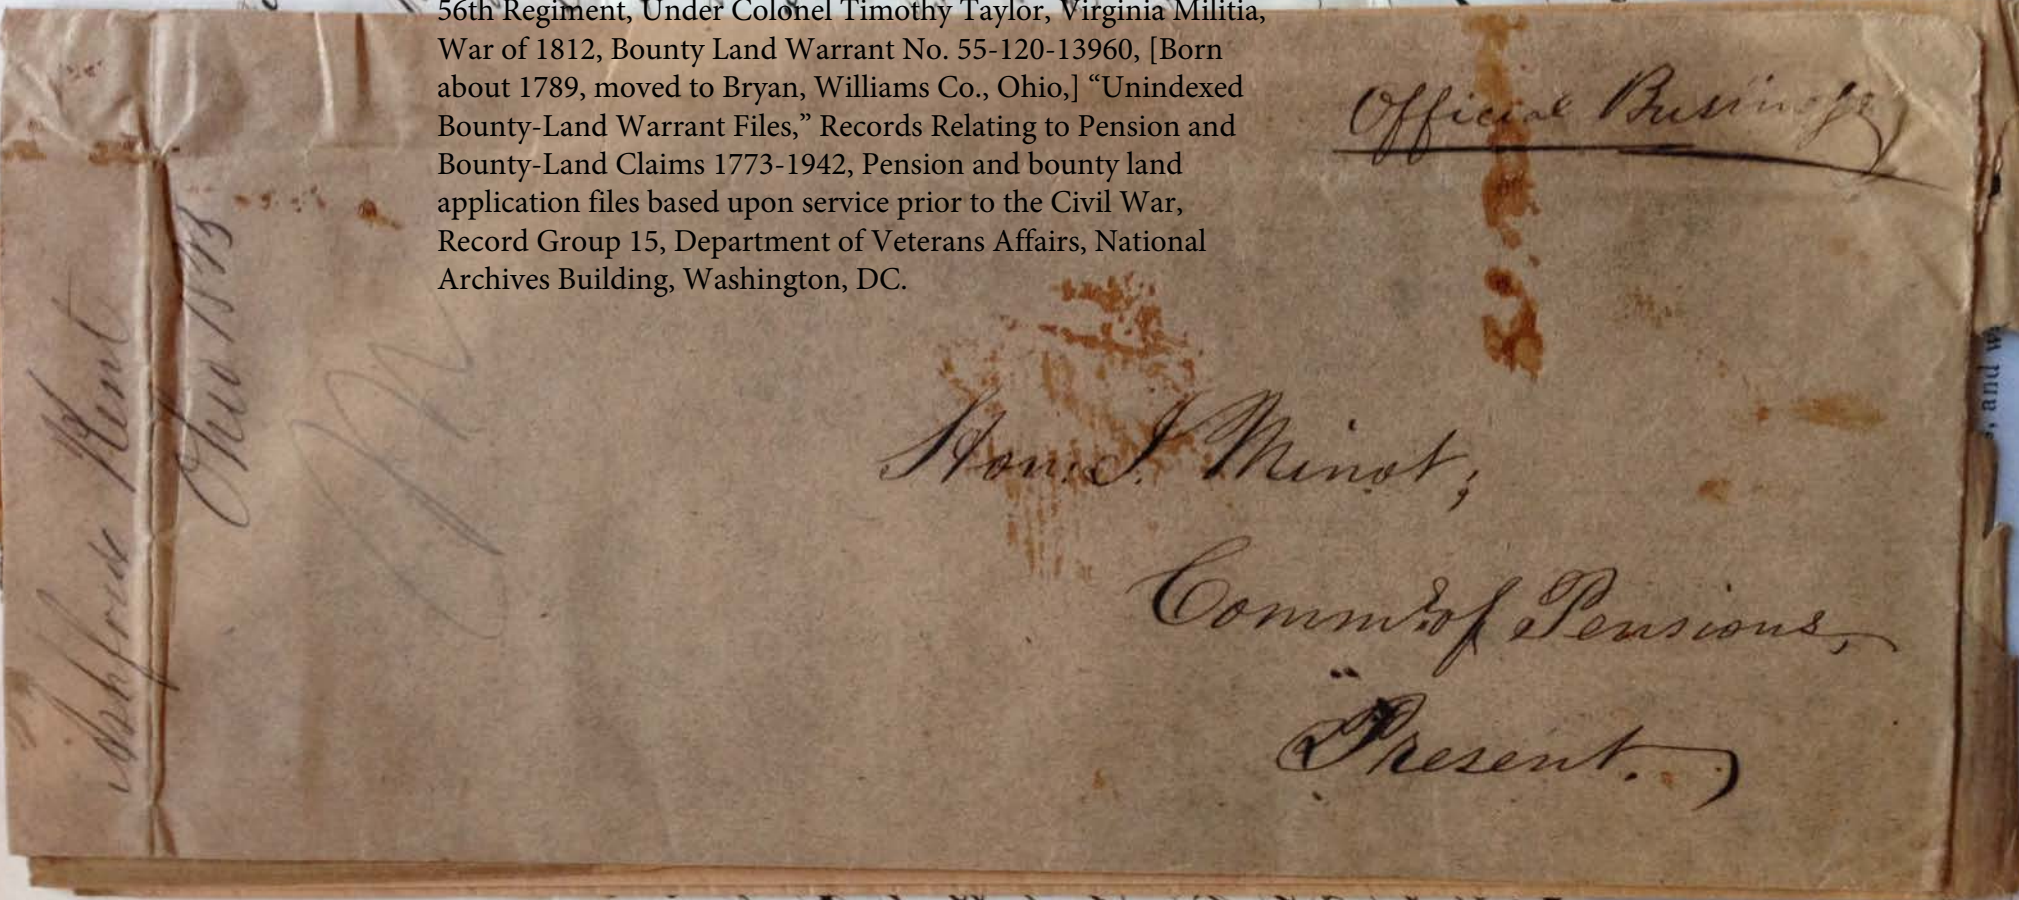 56th Regiment, Under Colonel Timothy Taylor, Virginia Militia,
War of 1812, Bounty Land Warrant No. 55-120-13960, [Born
about 1789, moved to Bryan, Williams Co., Ohio,] “Unindexed
Bounty-Land Warrant Files,” Records Relating to Pension and
Bounty-Land Claims 1773-1942, Pension and bounty land
application files based upon service prior to the Civil War,
Record Group 15, Department of Veterans Affairs, National
Archives Building, Washington, DC.
Official Business
Hon. J. Minot,
Commr. of Pensions,
Present.
Kent
Ohio
, and w